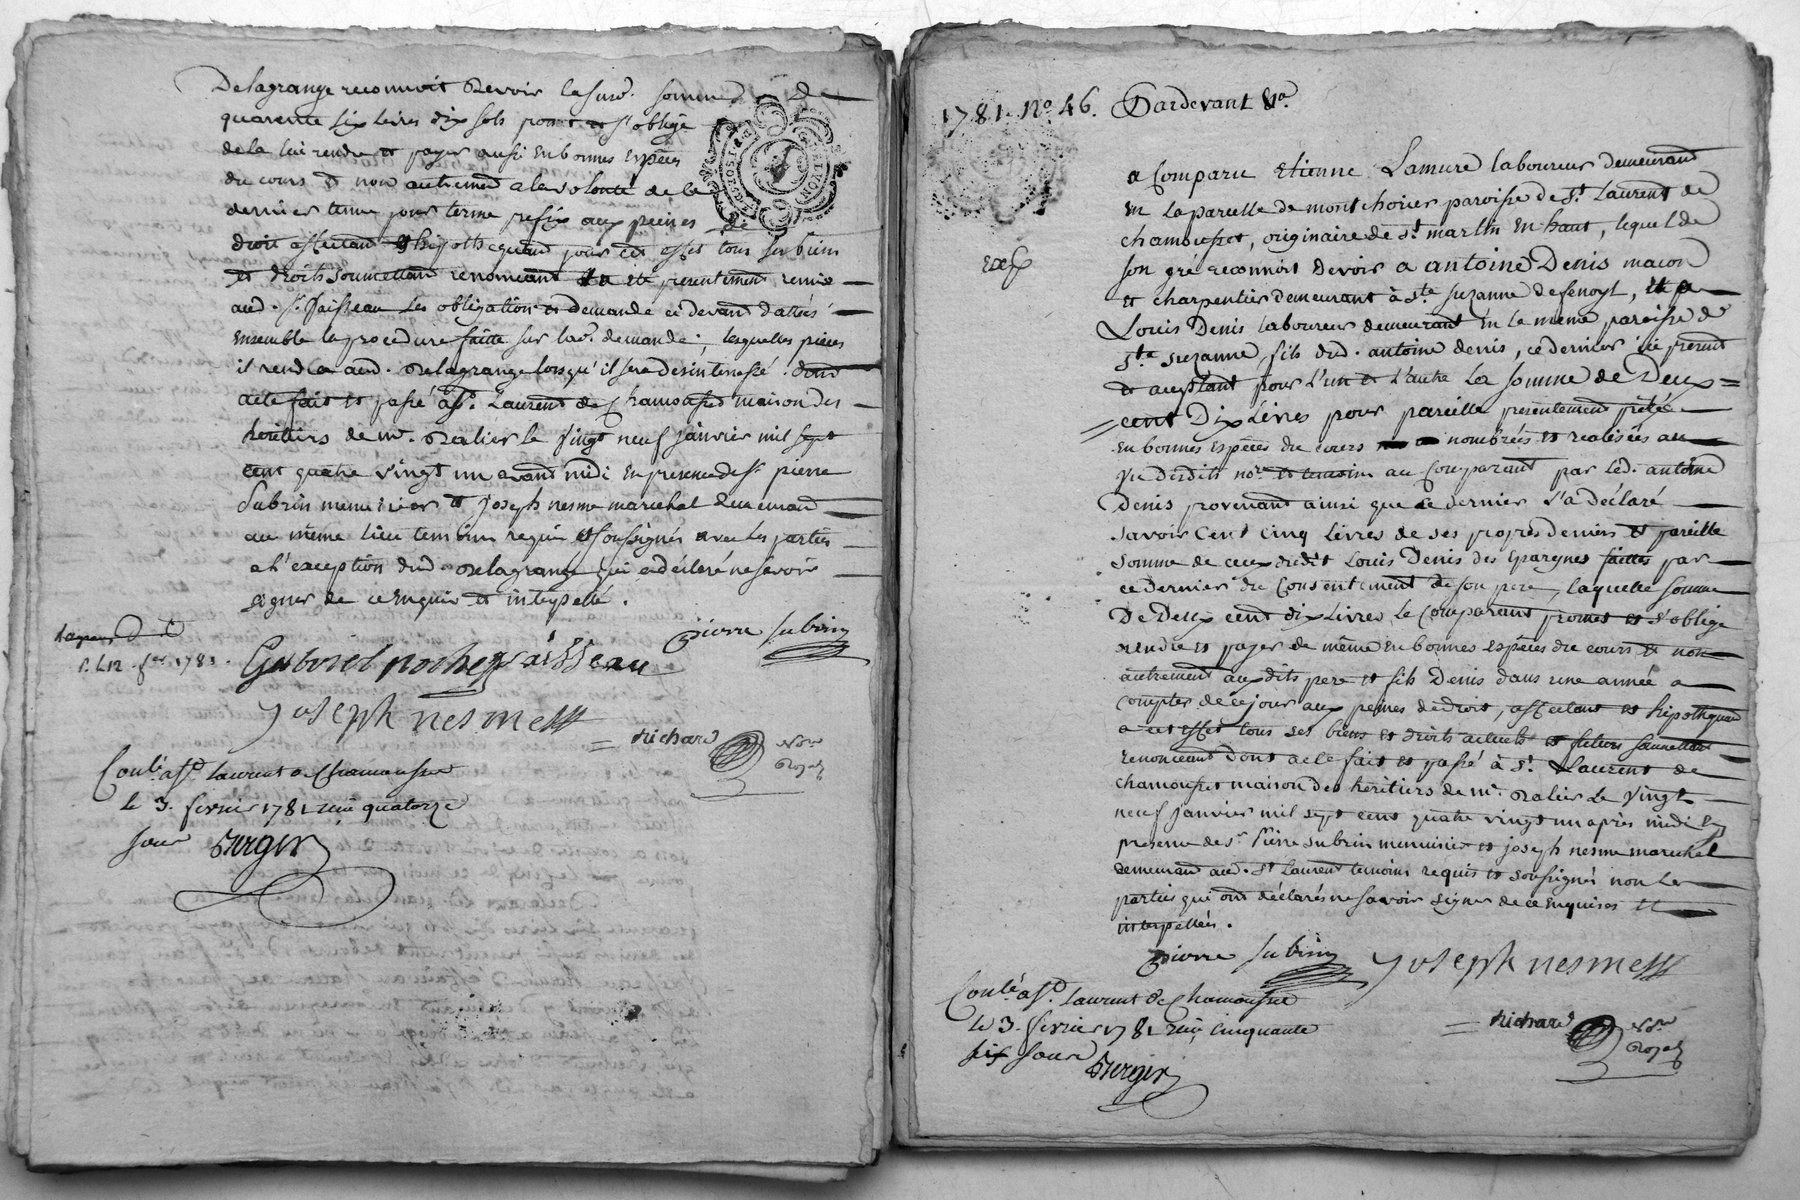 Delagrange reconnoit devoir la susd. somme de
quarente six livres dix sols promet et s'oblige
de la lui rendre et payer aussi en bonnes espèces
du cours et non autrement a la volonté de ce
dernier tenue pour terme prefix aux peines de
droit affectant et hipothequant pour cet effet tous ses biens
et droits soumettant renonceant et presentement remis
aud. Sr. Paisseau les obligation et demande ci devant dattés
ensemble la procedure faitte sur lad. demande, lesquelles pieces
il rendra aud. Delagrange lorsqu'il sera desinteressé. dont
acte fait et passé à St. Laurent de Chamousset maison des
héritiers de mr. Dalier le vingt neuf janvier mil sept
cent quatre vingt un avant midi en presence de Sr. pierre
Subrin menuisier et joseph nesme marechal demeurant
au même lieu temoins requis et soussignés avec les parties
a l'exception dud. Delagrange qui a déclaré ne savoir
signer de ce enquis et interpellé.
pierre subrin
Gabriel paisseau
joseph nesme
Richard Nore
Royal
Conlé à St. Laurent de Chamousset
le 3. fevrier 1781 reçu quatorze
sous
Berger
1781. No. 46. Pardevant &a.
a Comparu Etienne Lamure laboureur demeurant
en la parcelle de montchorier paroisse de St. Laurent de
chamousset, originaire de St. martin en haut, lequel de
son gré reconnoit devoir a antoine Denis macon
et charpentier demeurant à Ste. suzanne de fenoyl, et a
Louis Denis laboureur demeurant en la même paroisse de
Ste. suzanne, fils dud. antoine denis, ce dernier ici present
et acceptant pour l'un et l'autre la somme de Deux
cent Dix Livres pour pareille presentement prêtée
en bonnes espèces du cours nombrées et realisées au
vu desdits nore. et temoins au Comparant par led. antoine
Denis provenant ainsi que ce dernier l'a déclaré
savoir Cent Cinq Livres de ses propres deniers et pareille
somme de ceux dudit Louis Denis des épargnes faittes par
ce dernier du Consentement de son pere, laquelle somme
De Deux cent dix Livres le Comparant promet et s'oblige
rendre et payer de même en bonnes espèces du cours et non
autrement auxdits pere et fils Denis dans une année a
Compter de ce jour aux peines de droit, affectant et hipothequant
a cet effet tous ses biens et droits actuels et futurs soumettant
renonceant dont acte fait et passé à St. Laurent de
chamousset maison des héritiers de mr. Dalier le vingt
neuf janvier mil sept cent quatre vingt un après midi en
presence de Sr. Pierre subrin menuisier et joseph nesme marechal
demeurant aud. St Laurent temoins requis et soussignés non les
parties qui ont déclaré ne savoir signer de ce enquises et
interpellées.
pierre subrin joseph nesme
Conlé à St. Laurent de Chamousset
le 3. fevrier 1781 reçu cinquante
six sous
Berger
Richard Nore
Royal